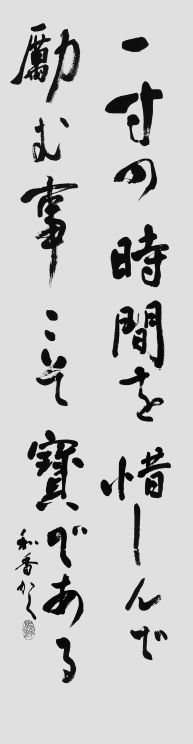 一寸の時間を惜しんで
励む事こそ寳である
和香かく